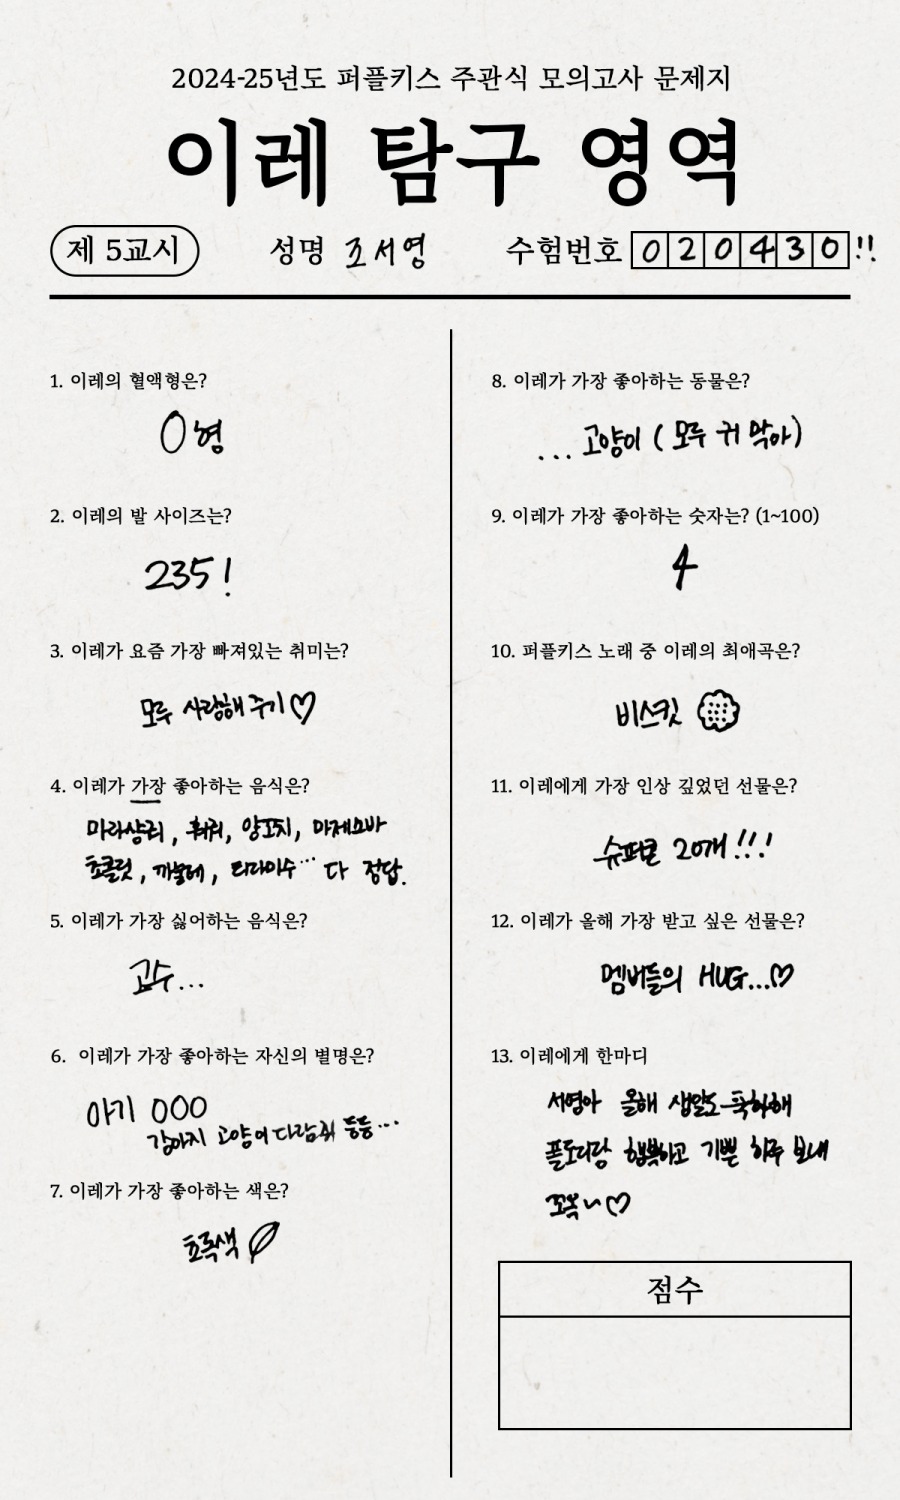 2024-25년도 퍼플키스 주관식 모의고사 문제지
이레 탐구 영역
제 5교시 성명 조서영 수험번호 020430!!
1. 이레의 혈액형은?
O형
2. 이레의 발 사이즈는?
235!
3. 이레가 요즘 가장 빠져있는 취미는?
모두 사랑해 주기♡
4. 이레가 가장 좋아하는 음식은?
마라샹궈, 훠궈, 양꼬치, 마제소바
초콜릿, 까눌레, 티라미수… 다 정답.
5. 이레가 가장 싫어하는 음식은?
고수...
6. 이레가 가장 좋아하는 자신의 별명은?
아기 OOO
강아지 고양이 다람쥐 등등…
7. 이레가 가장 좋아하는 색은?
초록색
8. 이레가 가장 좋아하는 동물은?
... 고양이 (모두 귀 막아)
9. 이레가 가장 좋아하는 숫자는? (1~100)
4
10. 퍼플키스 노래 중 이레의 최애곡은?
비스킷
11. 이레에게 가장 인상 깊었던 선물은?
슈퍼콘 20개!!!
12. 이레가 올해 가장 받고 싶은 선물은?
멤버들의 HUG...♡
13. 이레에게 한마디
서영아 올해 생일도 축하해
플토리랑 행복하고 기쁜 하루 보내
꼬옥~♡
점수